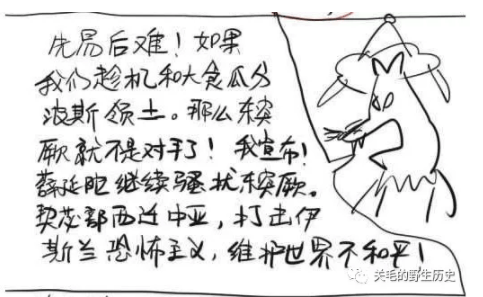 先易后难！如果
我们趁机和大食瓜分
波斯领土。那么东突
厥就不是对手了！我宣布！
薛延陀继续骚扰东突厥。
契苾部西迁中亚，打击伊
斯兰恐怖主义，维护世界不和平！
关毛的野生历史